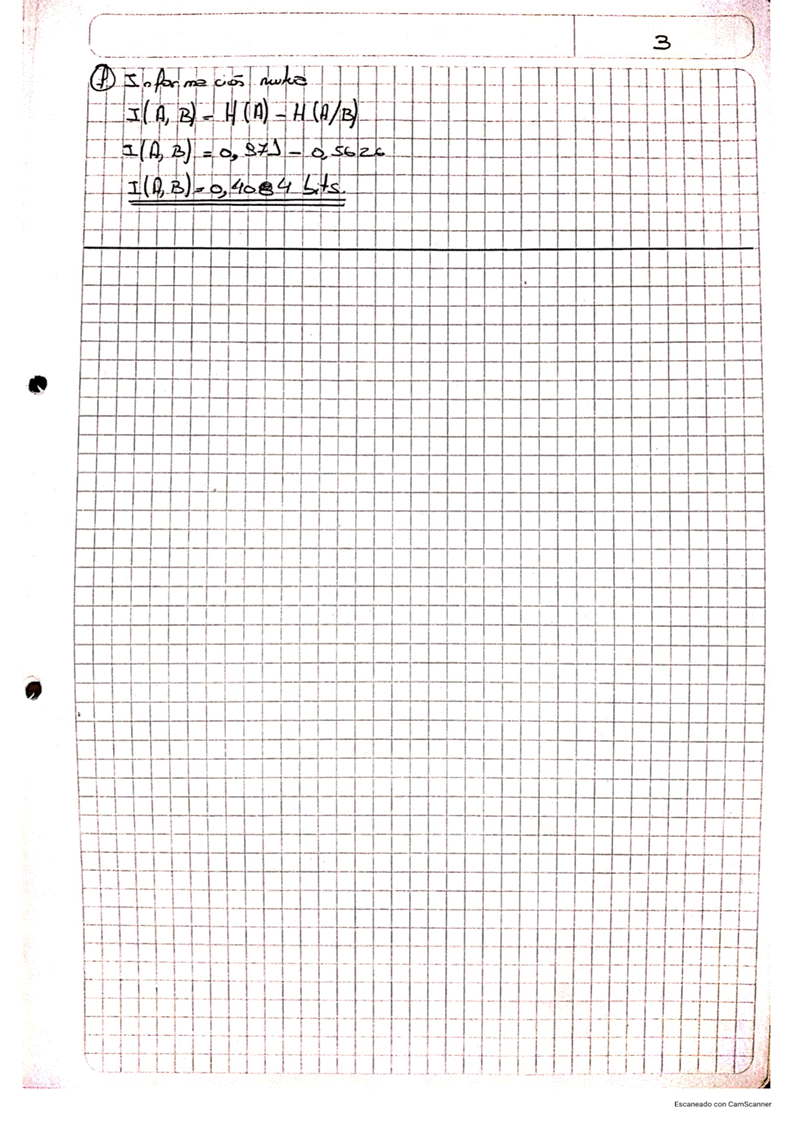 3
f) Información mutua
I(A, B) = H(A) - H(A/B)
I(A, B) = 0,971 - 0,5626
I(A, B) = 0,4084 bits.
Escaneado con CamScanner